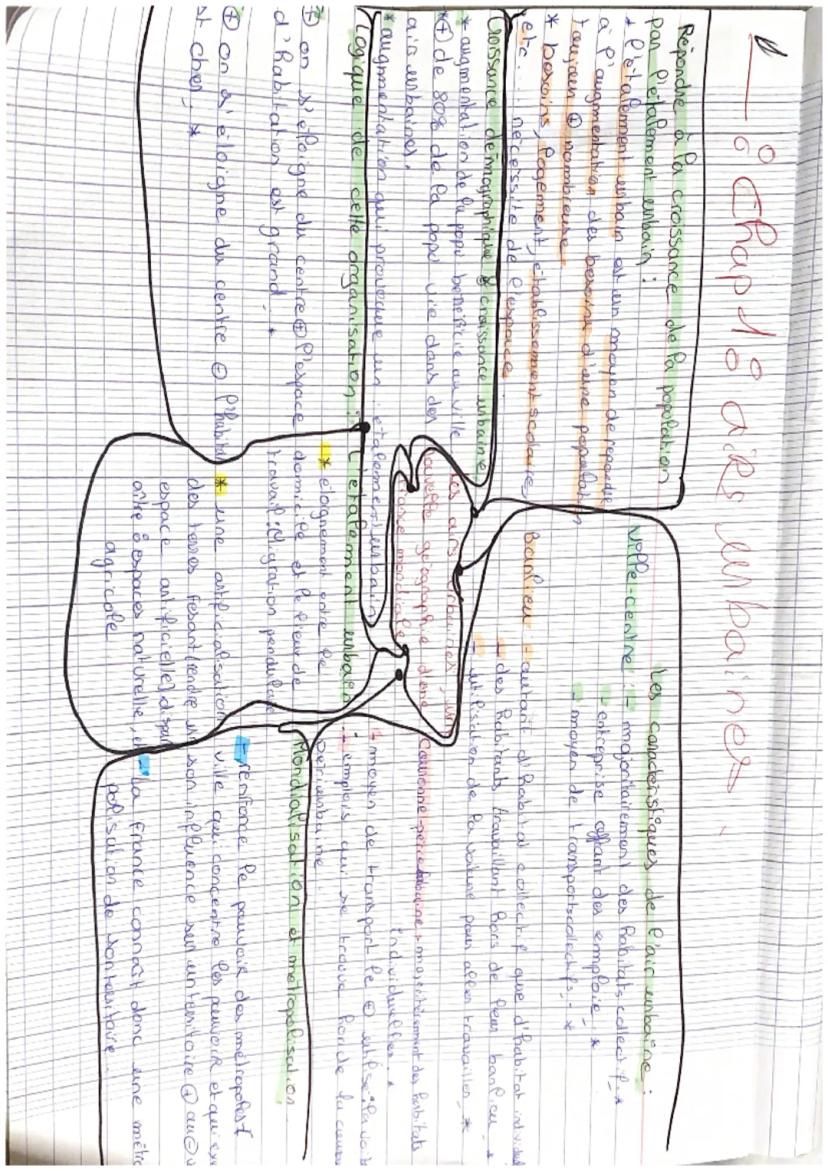 Chap 1 : aires urbaines.
Répondre à la croissance de la population
par l'étalement urbain :
* l'étalement urbain est un moyen de repondre
à l'augmentation des besoins d'une population
toujours + nombreuse
* besoins, logement, établissement scolaire,
etc... nécessite de l'espace
Croissance démographique & croissance urbaine
* augmentation de la popu bénéficie au ville
* + de 80% de la popu vie dans des
air urbaines.
* augmentation qui provoque un étalement urbain
Logique de cette organisation :
+ on s'éloigne du centre + l'espace
d'habitation est grand. *
+ on s'éloigne du centre - l'habitat
st cher. *
Les airs urbaines, un
nouvelle géographie d'une
France mondialisée
Les caractéristiques de l'air urbaine :
Ville-centre : - majoritairement des habitats collectif *
- entreprise offrant des emplois *
- moyen de transports collectifs. *
Banlieu - autant d'habitat collectif que d'habitat individuel
- des habitants travaillant hors de leur banlieu *
- utilisation de la voiture pour aller travailler *
Couronne périurbaine * majoritairement des habitats
individuelles *
* moyen de transport le + utilisé la voit
* emplois qui se trouve hors de la couron
périurbaine
L'étalement urbain
* éloignement entre le
domicile et le lieu de
travail : Migration pendulaire
* une artificialisation
des terres fesant rendre un
espace artificielle
naturelle, et
agricole
Mondialisation et métropolisation
- renforce le pouvoir des métropoles (
ville qui concentre les pouvoir et qui ex
son influence sur un territoire + ou - v
- La France connaît donc une métro
polisation de son territoire.